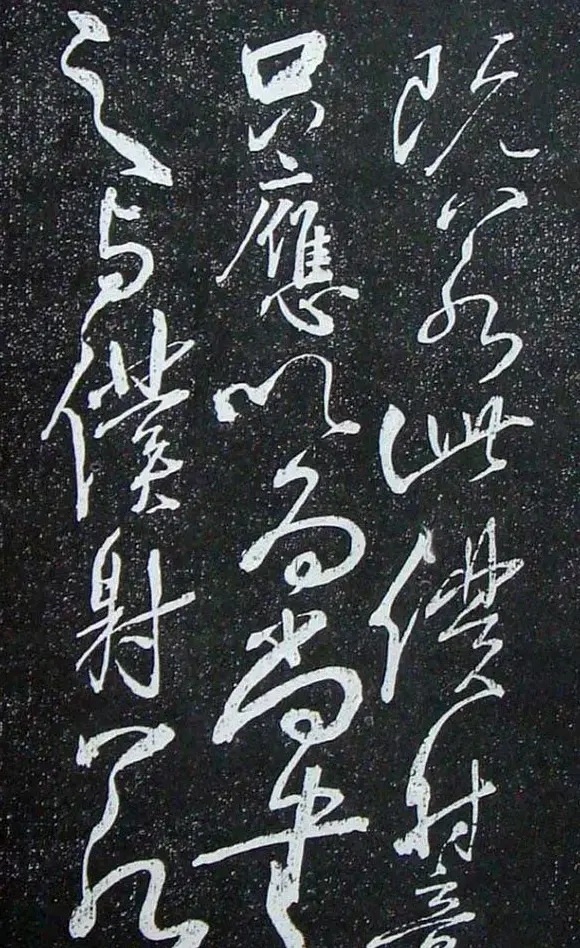 既若此僕射意
只應以為尚書
之与僕射若